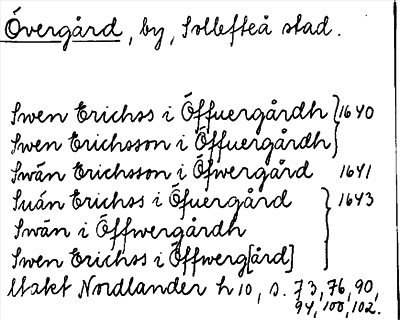 Övergård, by, Sollefteå stad.
Swen Erichss i Öffuergårdh } 1640
Swen Erichsson i Öffuergårdh
Swän Erichsson i Öfwergård 1641
Suán Erichss i Öfuergård } 1643
Swän i Öffwergårdh
Swen Erichss i Öffwerg[ård]
Utakt Nordlander h 10, s. 73, 76, 90,
94, 100, 102.